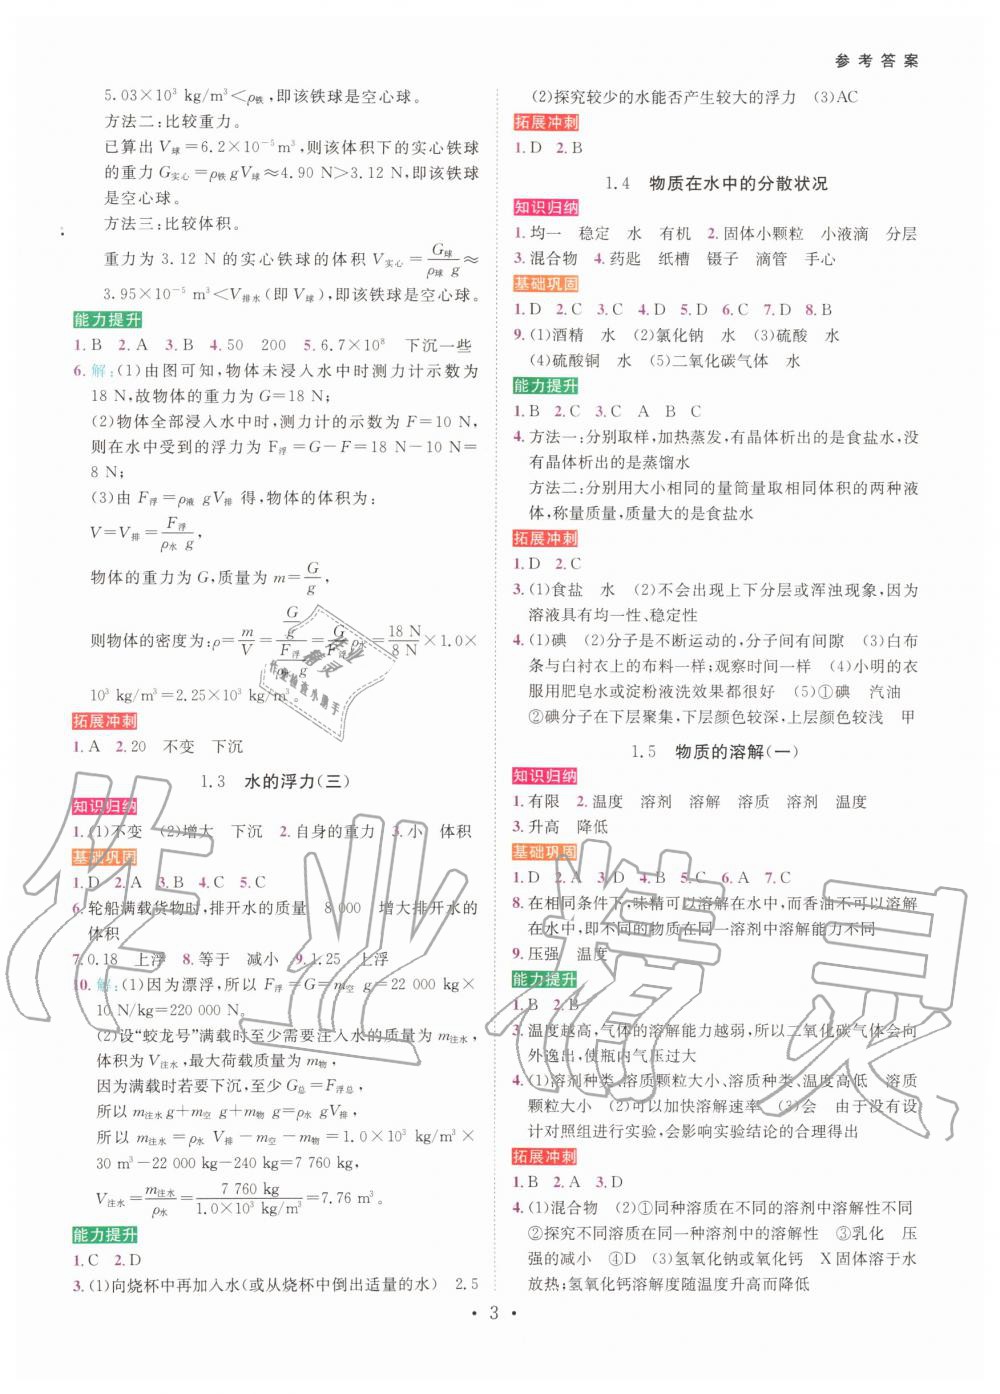 参考答案
5.03×10³ kg/m³<ρ铁,即该铁球是空心球。
方法二:比较重力。
已算出V球=6.2×10⁻⁵m³,则该体积下的实心铁球
的重力G实心=ρ铁gV球≈4.90 N>3.12 N,即该铁球
是空心球。
方法三:比较体积。
重力为3.12 N的实心铁球的体积V实心=G球/(ρ球 g)≈
3.95×10⁻⁵ m³<V排水(即V球),即该铁球是空心球。
能力提升
1.B 2.A 3.B 4.50 200 5.6.7×10⁸ 下沉一些
6.解:(1)由图可知,物体未浸入水中时测力计示数为
18 N,故物体的重力为G=18 N;
(2)物体全部浸入水中时,测力计的示数为F=10 N,
则在水中受到的浮力为F浮=G-F=18 N-10 N=
8 N;
(3)由F浮=ρ液 gV排 得,物体的体积为:
V=V排=F浮/(ρ水 g),
物体的重力为G,质量为m=G/g,
则物体的密度为:ρ=m/V=(G/g)/(F浮/(ρ水 g))=G/F浮 ρ水=18 N/8 N×1.0×
10³ kg/m³=2.25×10³ kg/m³。
拓展冲刺
1.A 2.20 不变 下沉
1.3 水的浮力(三)
知识归纳
1.(1)不变 (2)增大 下沉 2.自身的重力 3.小 体积
基础巩固
1.D 2.A 3.B 4.C 5.C
6.轮船满载货物时,排开水的质量 8 000 增大排开水的
体积
7.0.18 上浮 8.等于 减小 9.1.25 上浮
10.解:(1)因为漂浮,所以F浮=G总=m空 g=22 000 kg×
10 N/kg=220 000 N。
(2)设“蛟龙号”满载时至少需要注入水的质量为m注水,
体积为V注水,最大荷载质量为m物,
因为满载时若要下沉,至少G总=F浮总,
所以m注水g+m空 g+m物g=ρ水 gV排,
所以m注水=ρ水 V排-m空-m物=1.0×10³ kg/m³×
30 m³-22 000 kg-240 kg=7 760 kg,
V注水=m注水/ρ水=7 760 kg/(1.0×10³ kg/m³)=7.76 m³。
能力提升
1.C 2.D
3.(1)向烧杯中再加入水(或从烧杯中倒出适量的水) 2.5
(2)探究较少的水能否产生较大的浮力 (3)AC
拓展冲刺
1.D 2.B
1.4 物质在水中的分散状况
知识归纳
1.均一 稳定 水 有机 2.固体小颗粒 小液滴 分层
3.混合物 4.药匙 纸槽 镊子 滴管 手心
基础巩固
1.D 2.C 3.C 4.A 5.D 6.D 7.D 8.B
9.(1)酒精 水 (2)氯化钠 水 (3)硫酸 水
(4)硫酸铜 水 (5)二氧化碳气体 水
能力提升
1.B 2.C 3.C A B C
4.方法一:分别取样,加热蒸发,有晶体析出的是食盐水,没
有晶体析出的是蒸馏水
方法二:分别用大小相同的量筒量取相同体积的两种液
体,称量质量,质量大的是食盐水
拓展冲刺
1.D 2.C
3.(1)食盐 水 (2)不会出现上下分层或浑浊现象,因为
溶液具有均一性、稳定性
4.(1)碘 (2)分子是不断运动的,分子间有间隙 (3)白布
条与白衬衣上的布料一样;观察时间一样 (4)小明的衣
服用肥皂水或淀粉液洗效果都很好 (5)①碘 汽油
②碘分子在下层聚集,下层颜色较深,上层颜色较浅 甲
1.5 物质的溶解(一)
知识归纳
1.有限 2.温度 溶剂 溶解 溶质 溶剂 温度
3.升高 降低
基础巩固
1.D 2.A 3.D 4.B 5.C 6.A 7.C
8.在相同条件下,味精可以溶解在水中,而香油不可以溶解
在水中,即不同的物质在同一溶剂中溶解能力不同
9.压强 温度
能力提升
1.B 2.B
3.温度越高,气体的溶解能力越弱,所以二氧化碳气体会向
外逸出,使瓶内气压过大
4.(1)溶剂种类、溶质颗粒大小、溶质种类、温度高低 溶质
颗粒大小 (2)可以加快溶解速率 (3)会 由于没有设
计对照组进行实验,会影响实验结论的合理得出
拓展冲刺
1.B 2.A 3.D
4.(1)混合物 (2)①同种溶质在不同的溶剂中溶解性不同
②探究不同溶质在同一种溶剂中的溶解性 ③乳化 压
强的减小 ④D (3)氢氧化钠或氧化钙 X固体溶于水
放热;氢氧化钙溶解度随温度升高而降低
·3·
作业精灵
作业
精灵
作业检查小帮手